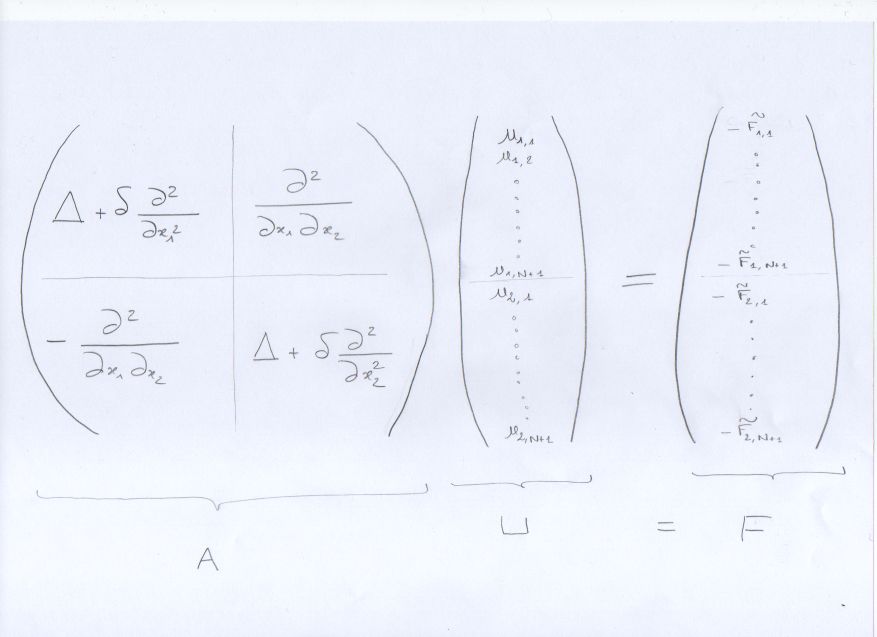 Δ + δ ∂²/∂x₁² | ∂²/∂x₁∂x₂
− ∂²/∂x₁∂x₂ | Δ + δ ∂²/∂x₂²
u₁,₁
u₁,₂
u₁,N+1
u₂,₁
u₂,N+1
=
− F̃₁,₁
− F̃₁,N+1
− F̃₂,₁
− F̃₂,N+1
A
U = F